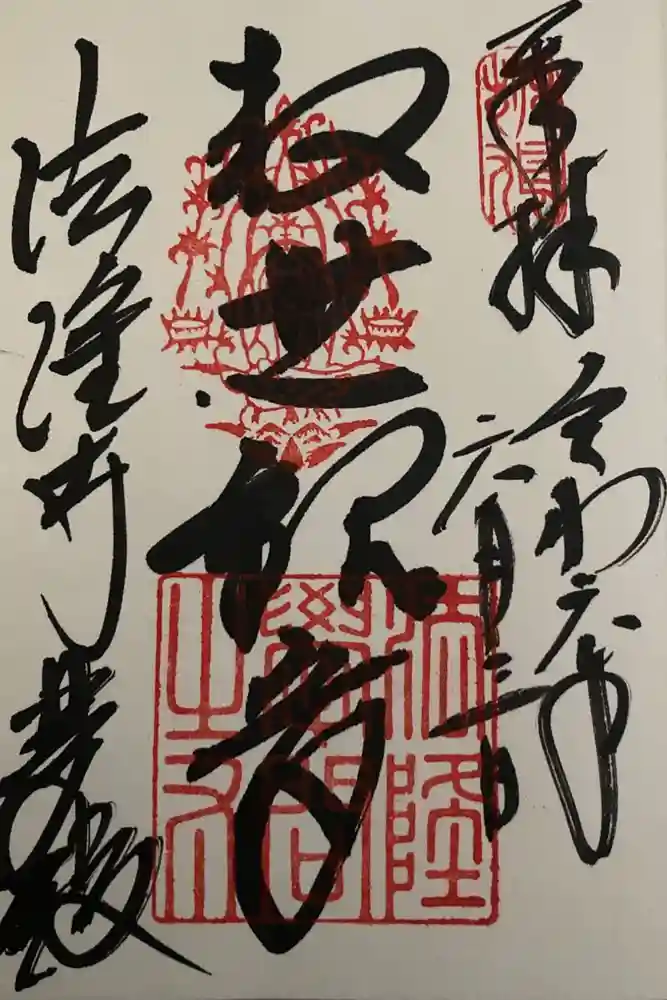 奉拝
令和六年
六月三日
救世観音
法隆寺 夢殿
法隆
學問